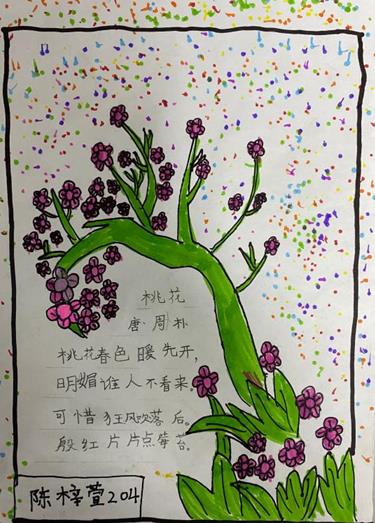 桃花
唐·周朴
桃花春色暖先开,
明媚谁人不看来。
可惜狂风吹落后。
殷红片片点莓苔。
陈梓萱204